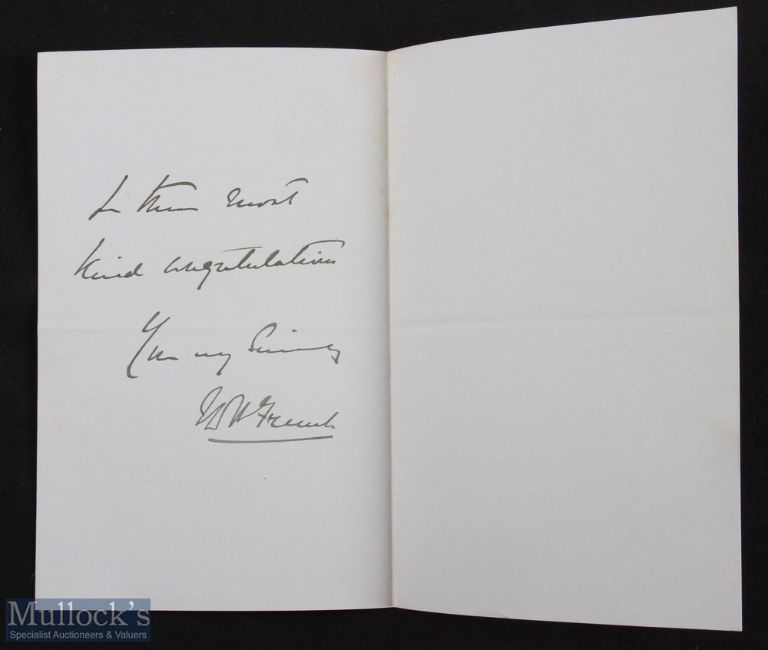 for their most
kind congratulations
Yours very Sincerely
French
Mullock's
Specialist Auctioneers & Valuers